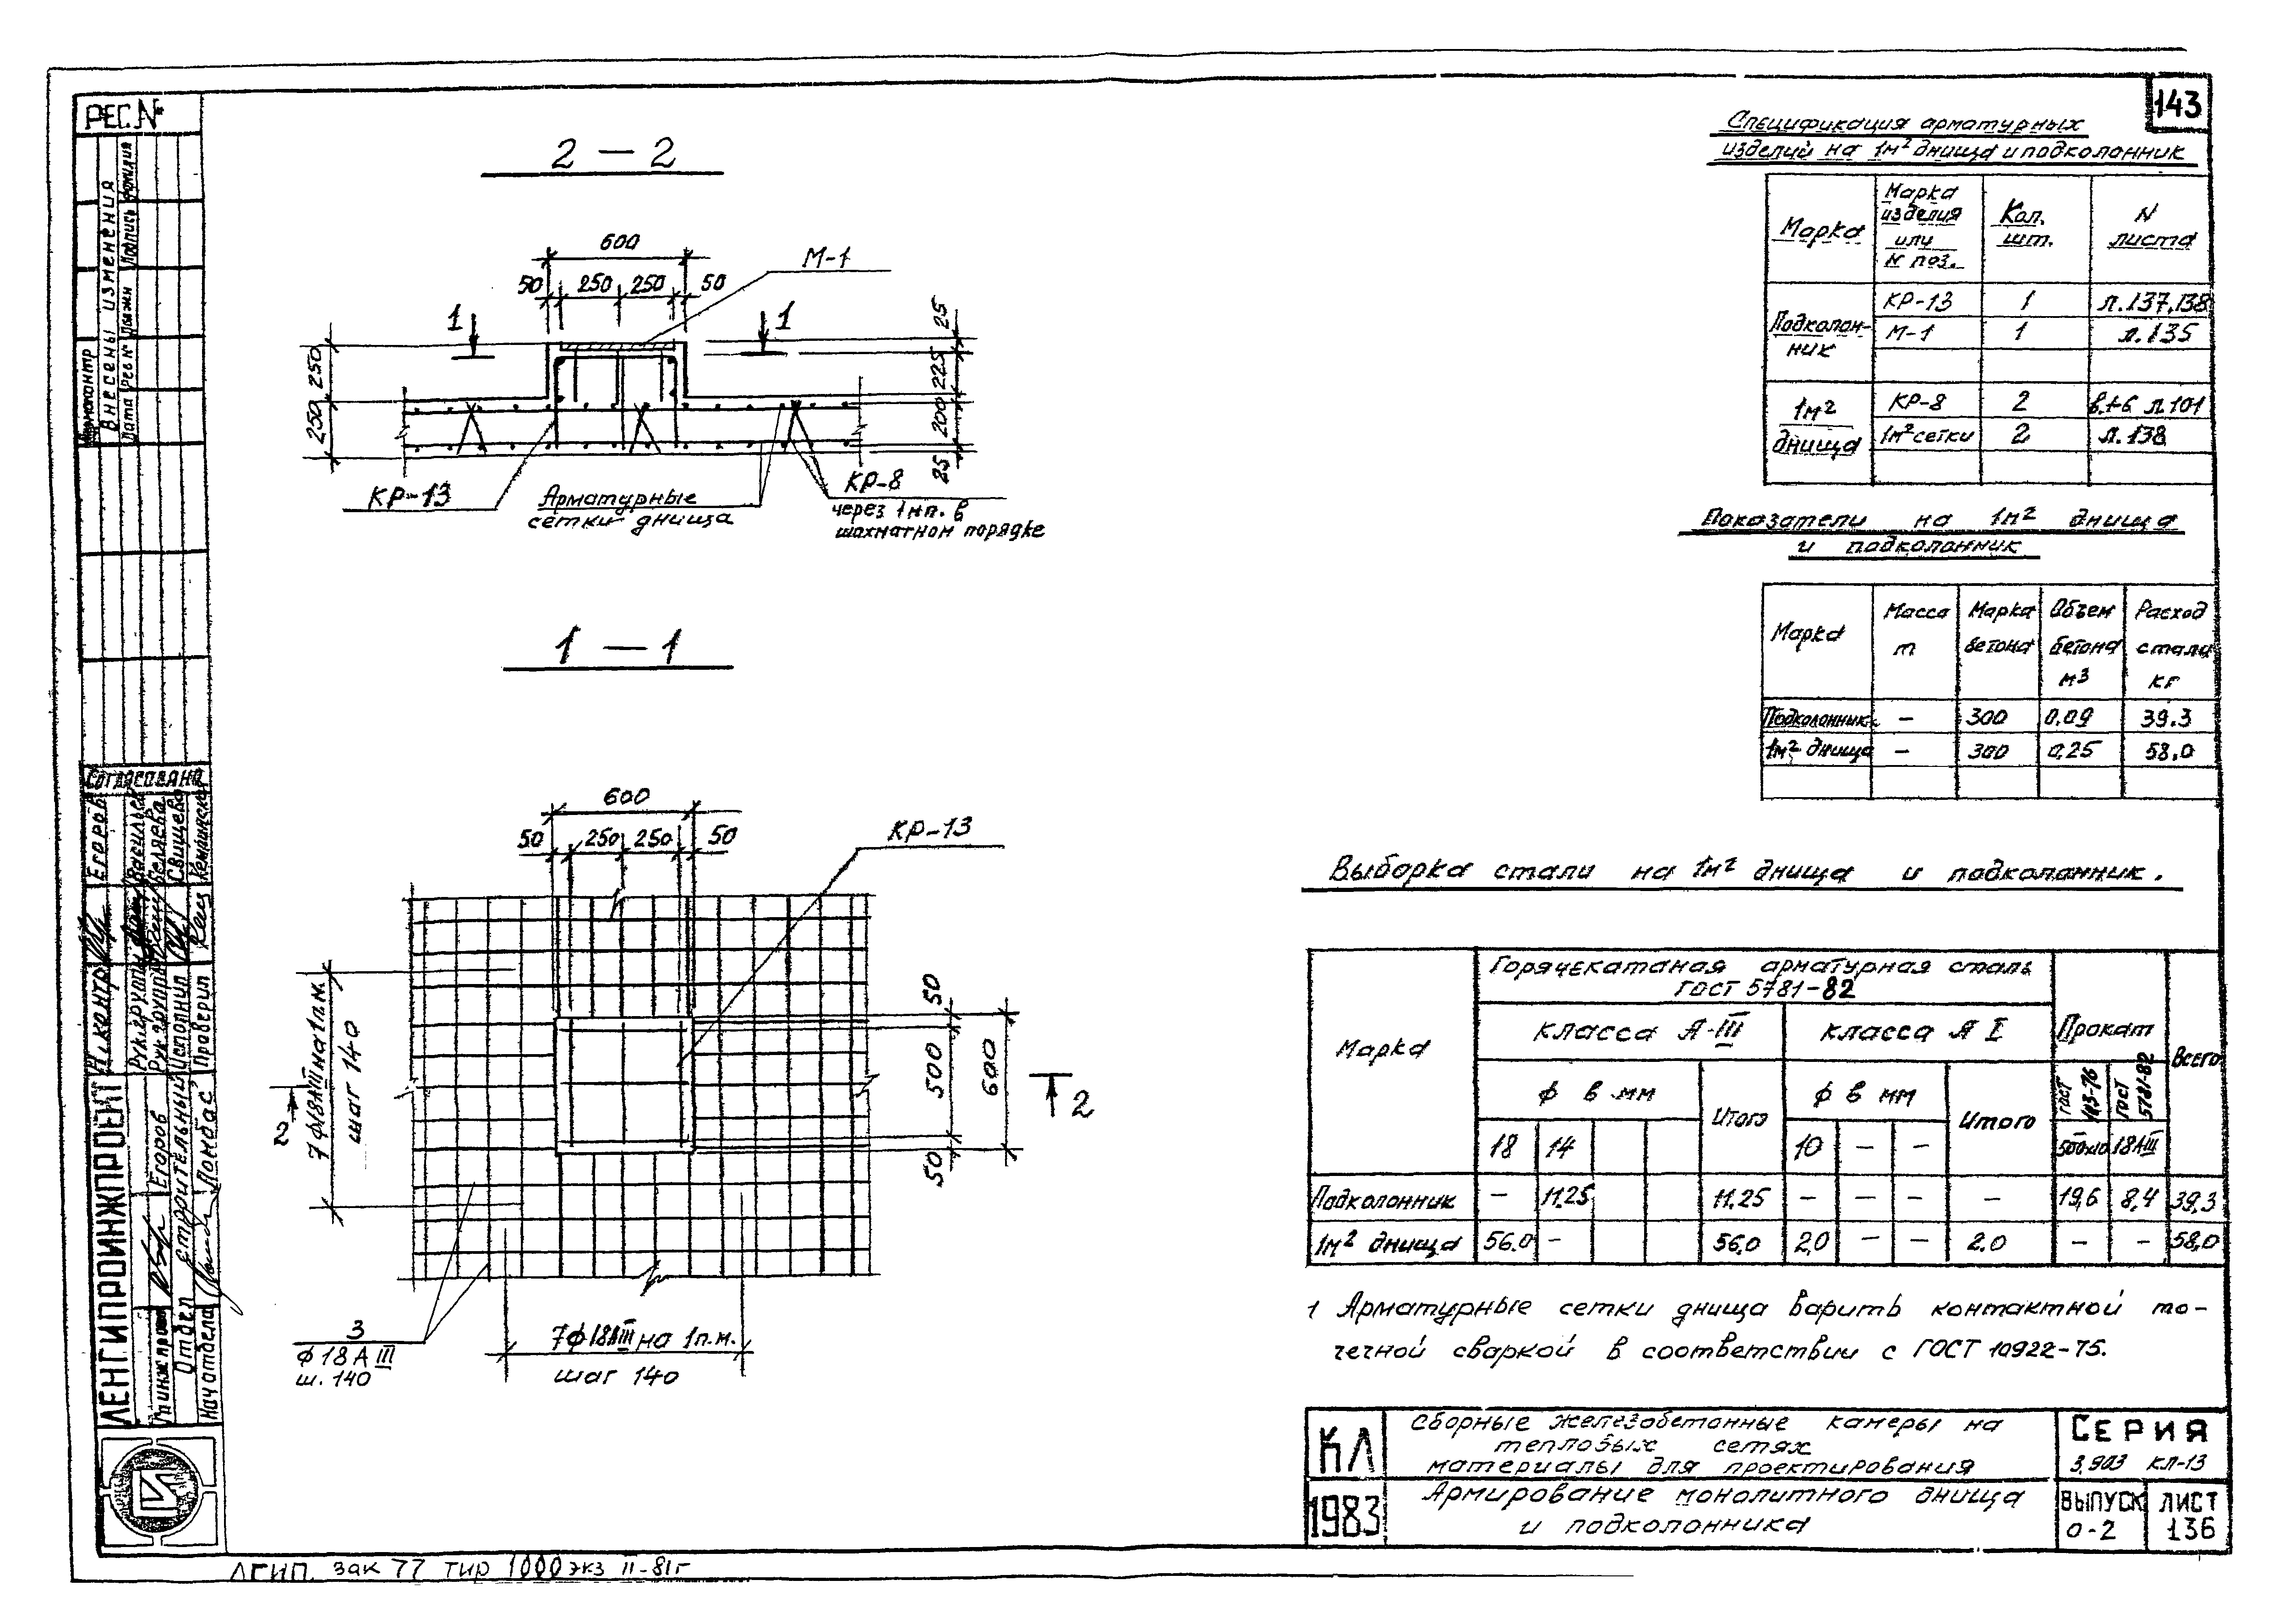 143
РЕС.№
Внесены изменения
Нормоконтр
Дата Рев№ Должн Подпись Фамилия
Согласовано
Егоров
Васильев
Беляева
Свищева
Н.контр
Рук.группы
Рук.группы
Исполнил
Проверил
ЛЕНГИПРОИНЖПРОЕКТ
Гл.инж.пр. Егоров
Отдел Строительный
Нач отдела Ломбас
2 – 2
600
50 250 250 50
М-1
1 1
250
250
25
225
200
25
КР-13
Арматурные
сетки днища
КР-8
через 1мп. в
шахматном порядке
1 – 1
600
50 250 250 50
КР-13
7ф18АIII на 1п.м.
шаг 140
50
500
50
600
2 2
3
ф18АIII
ш.140
7ф18АIII на 1п.м.
шаг 140
Спецификация арматурных
изделий на 1м² днища и подколонник
Марка
Марка изделия или N поз.
Кол. шт.
N листа
Подколонник
КР-13 1 л.137,138
М-1 1 л.135
1м² днища
КР-8 2 в.I-6 л.101
1м² сетки 2 л.138
Показатели на 1м² днища
и подколонник
Марка
Масса т
Марка бетона
Объем бетона м3
Расход стали кг
Подколонник – 300 0,09 39.3
1м² днища – 300 0,25 58,0
Выборка стали на 1м² днища и подколонник.
Марка
Горячекатаная арматурная сталь
ГОСТ 5781-82
Прокат
Всего
класса А-III класса А I
ф в мм Итого ф в мм Итого
ГОСТ 103-76
ГОСТ 5781-82
18 14 10 – – 500х10 18АIII
Подколонник – 11.25 11.25 – – – – 19,6 8,4 39,3
1м² днища 56.0 – 56,0 2,0 – – 2.0 – – 58,0
1 Арматурные сетки днища варить контактной то-
чечной сваркой в соответствии с ГОСТ 10922-75.
КЛ
1983
Сборные железобетонные камеры на
тепловых сетях
материалы для проектирования
СЕРИЯ
3.903 КЛ-13
Армирование монолитного днища
и подколонника
ВЫПУСК
0-2
ЛИСТ
136
ЛГИП. зак 77 тир 1000 экз II-81г